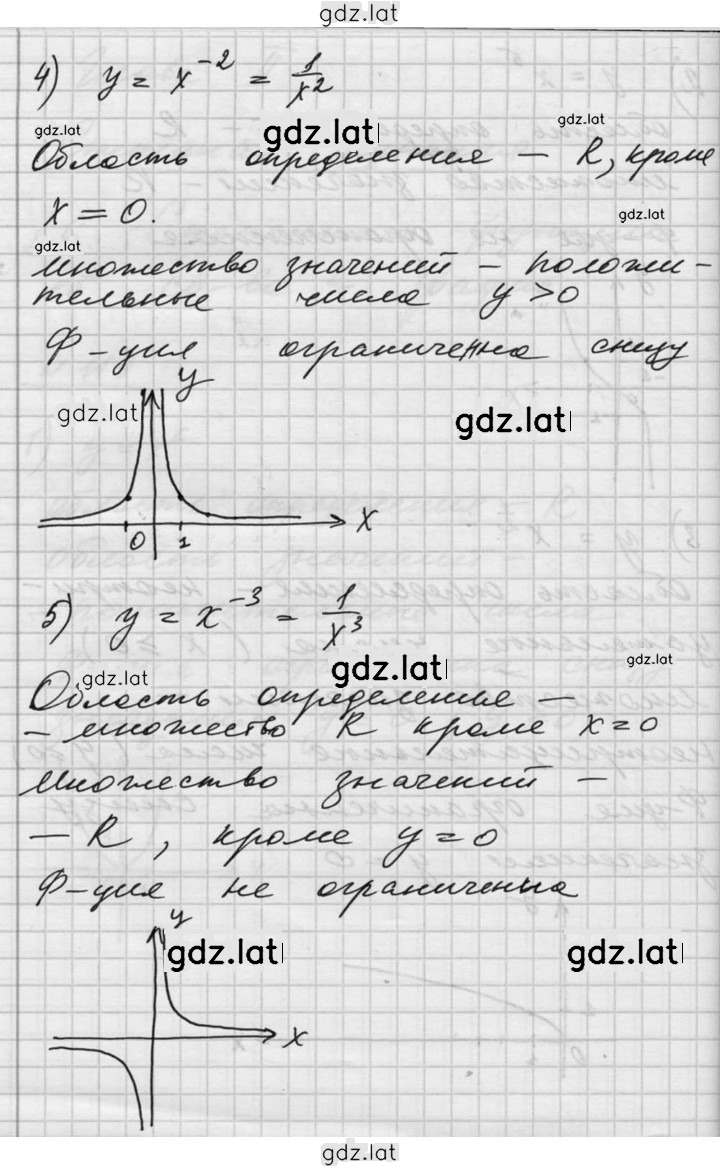 gdz.lat
4) y = x⁻² = 1/x²
gdz.lat gdz.lat gdz.lat
Область определения — R, кроме
x = 0.
gdz.lat
gdz.lat
множество значений – положи-
тельные числа y > 0
Ф-ция ограничена снизу
y
gdz.lat gdz.lat
x
0 1
5) y = x⁻³ = 1/x³
gdz.lat gdz.lat
gdz.lat
Область определенье —
- множество R кроме x = 0
Множество значений –
— R, кроме y = 0
Ф-ция не ограниченна
y
gdz.lat gdz.lat
x
gdz.lat